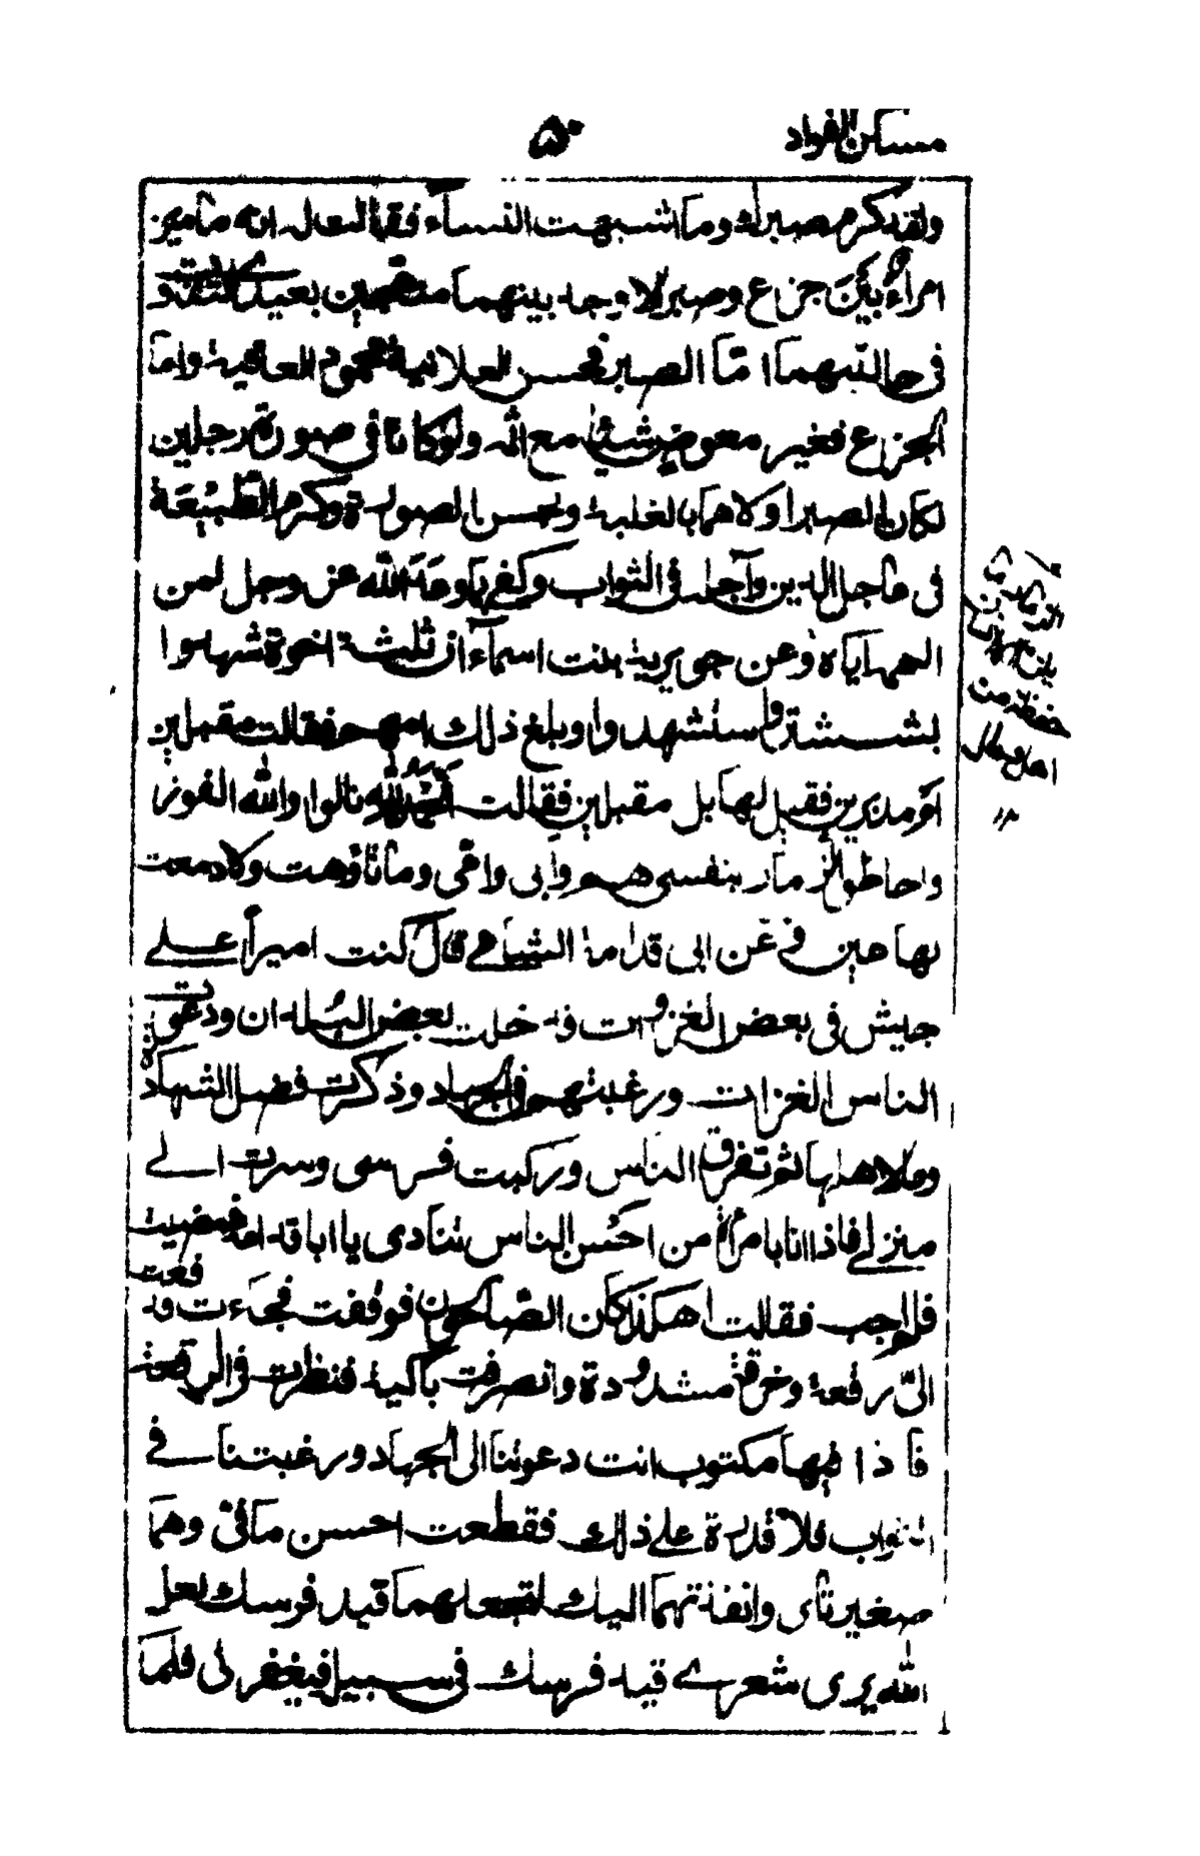 مسكن الفواد ٥٠
ولقد كرم صبرك وما اشبهت النساء فقالت له انه ما ميز
امراءٌ بين جزع وصبر الا وجد بينهما منهجين بعيدي التفاوت
فى حالتيهما امّا الصبر فحسن العلانية محمود العاقبة واما
الجزع فغير معوض شيئا مع اثمه ولو كانا فى صورة رجلين
لكان الصبر اولاهما بالغلبة وبحسن الصورة وكرم الطبيعة
فى عاجل الدين وآجله فى الثواب وكفى بما وعد الله عز وجل لمن
الهمه اياه وعن جويرية بنت اسماء ان ثلثة اخوة شهدوا
بشستر واستشهدوا وبلغ ذلك امهم فقالت مقبلين
او مدبرين فقيل لها بل مقبلين فقالت الحمد لله نالوا والله الفوز
واحاطوا الذمار بنفسى هم وابى وامى وما تاوهت ولا دمعت
لها عين وعن ابى قدامة الشامى قال كنت اميراً على
جيش فى بعض الغزوات فدخلت بعض البلدان ودعوت
الناس الغزات ورغبتهم فى الجهاد وذكرت فضل الشهادة
وما لاهلها ثم تفرق الناس وركبت فرسى وسرت الى
منزلى فاذا انا بامراة من احسن الناس تنادى يا ابا قدامة فمضيت
فلم اجب فقالت ما هكذا كان الصالحون فوقفت فجاءت ودفعت
الىّ رقعة وخرقة مشدودة وانصرفت باكية فنظرت فى الرقعة
فاذا فيها مكتوب انت دعوتنا الى الجهاد ورغبتنا فى
الثواب فلا قدرة على ذلك فقطعت احسن ما فىّ وهما
ضفيرتاى وانفذتهما اليك لتجعلهما قيد فرسك لعل
الله يرى شعرى قيد فرسك فى سبيله فيغفر لى فلما